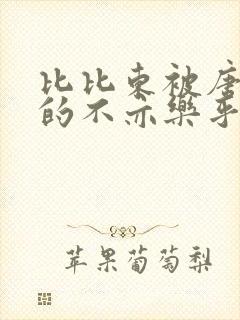 比比东被唐
的不亦乐乎
苹果葡萄梨